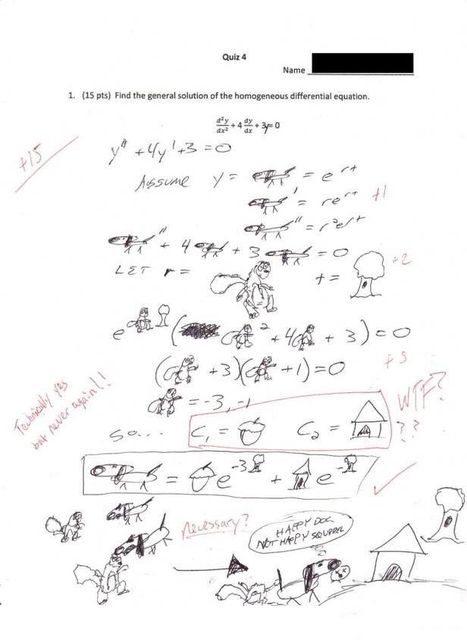 Quiz 4
Name
1. (15 pts) Find the general solution of the homogeneous differential equation.
d²y/dx² + 4 dy/dx + 3y = 0
+15
y'' + 4y' + 3 = 0
Assume y = = e^rt
' = re^rt +1
'' = r²e^rt
'' + 4 + 3 = 0
LET r = t = +2
e ( ² + 4 + 3) = 0
( + 3)( + 1) = 0
+5
= -3, -1
Technically yes
but never again!!
WTF?
??
so... C₁ = C₂ =
= e^-3 + e^-
Necessary?
HAPPY DOG
NOT HAPPY SQUIRREL